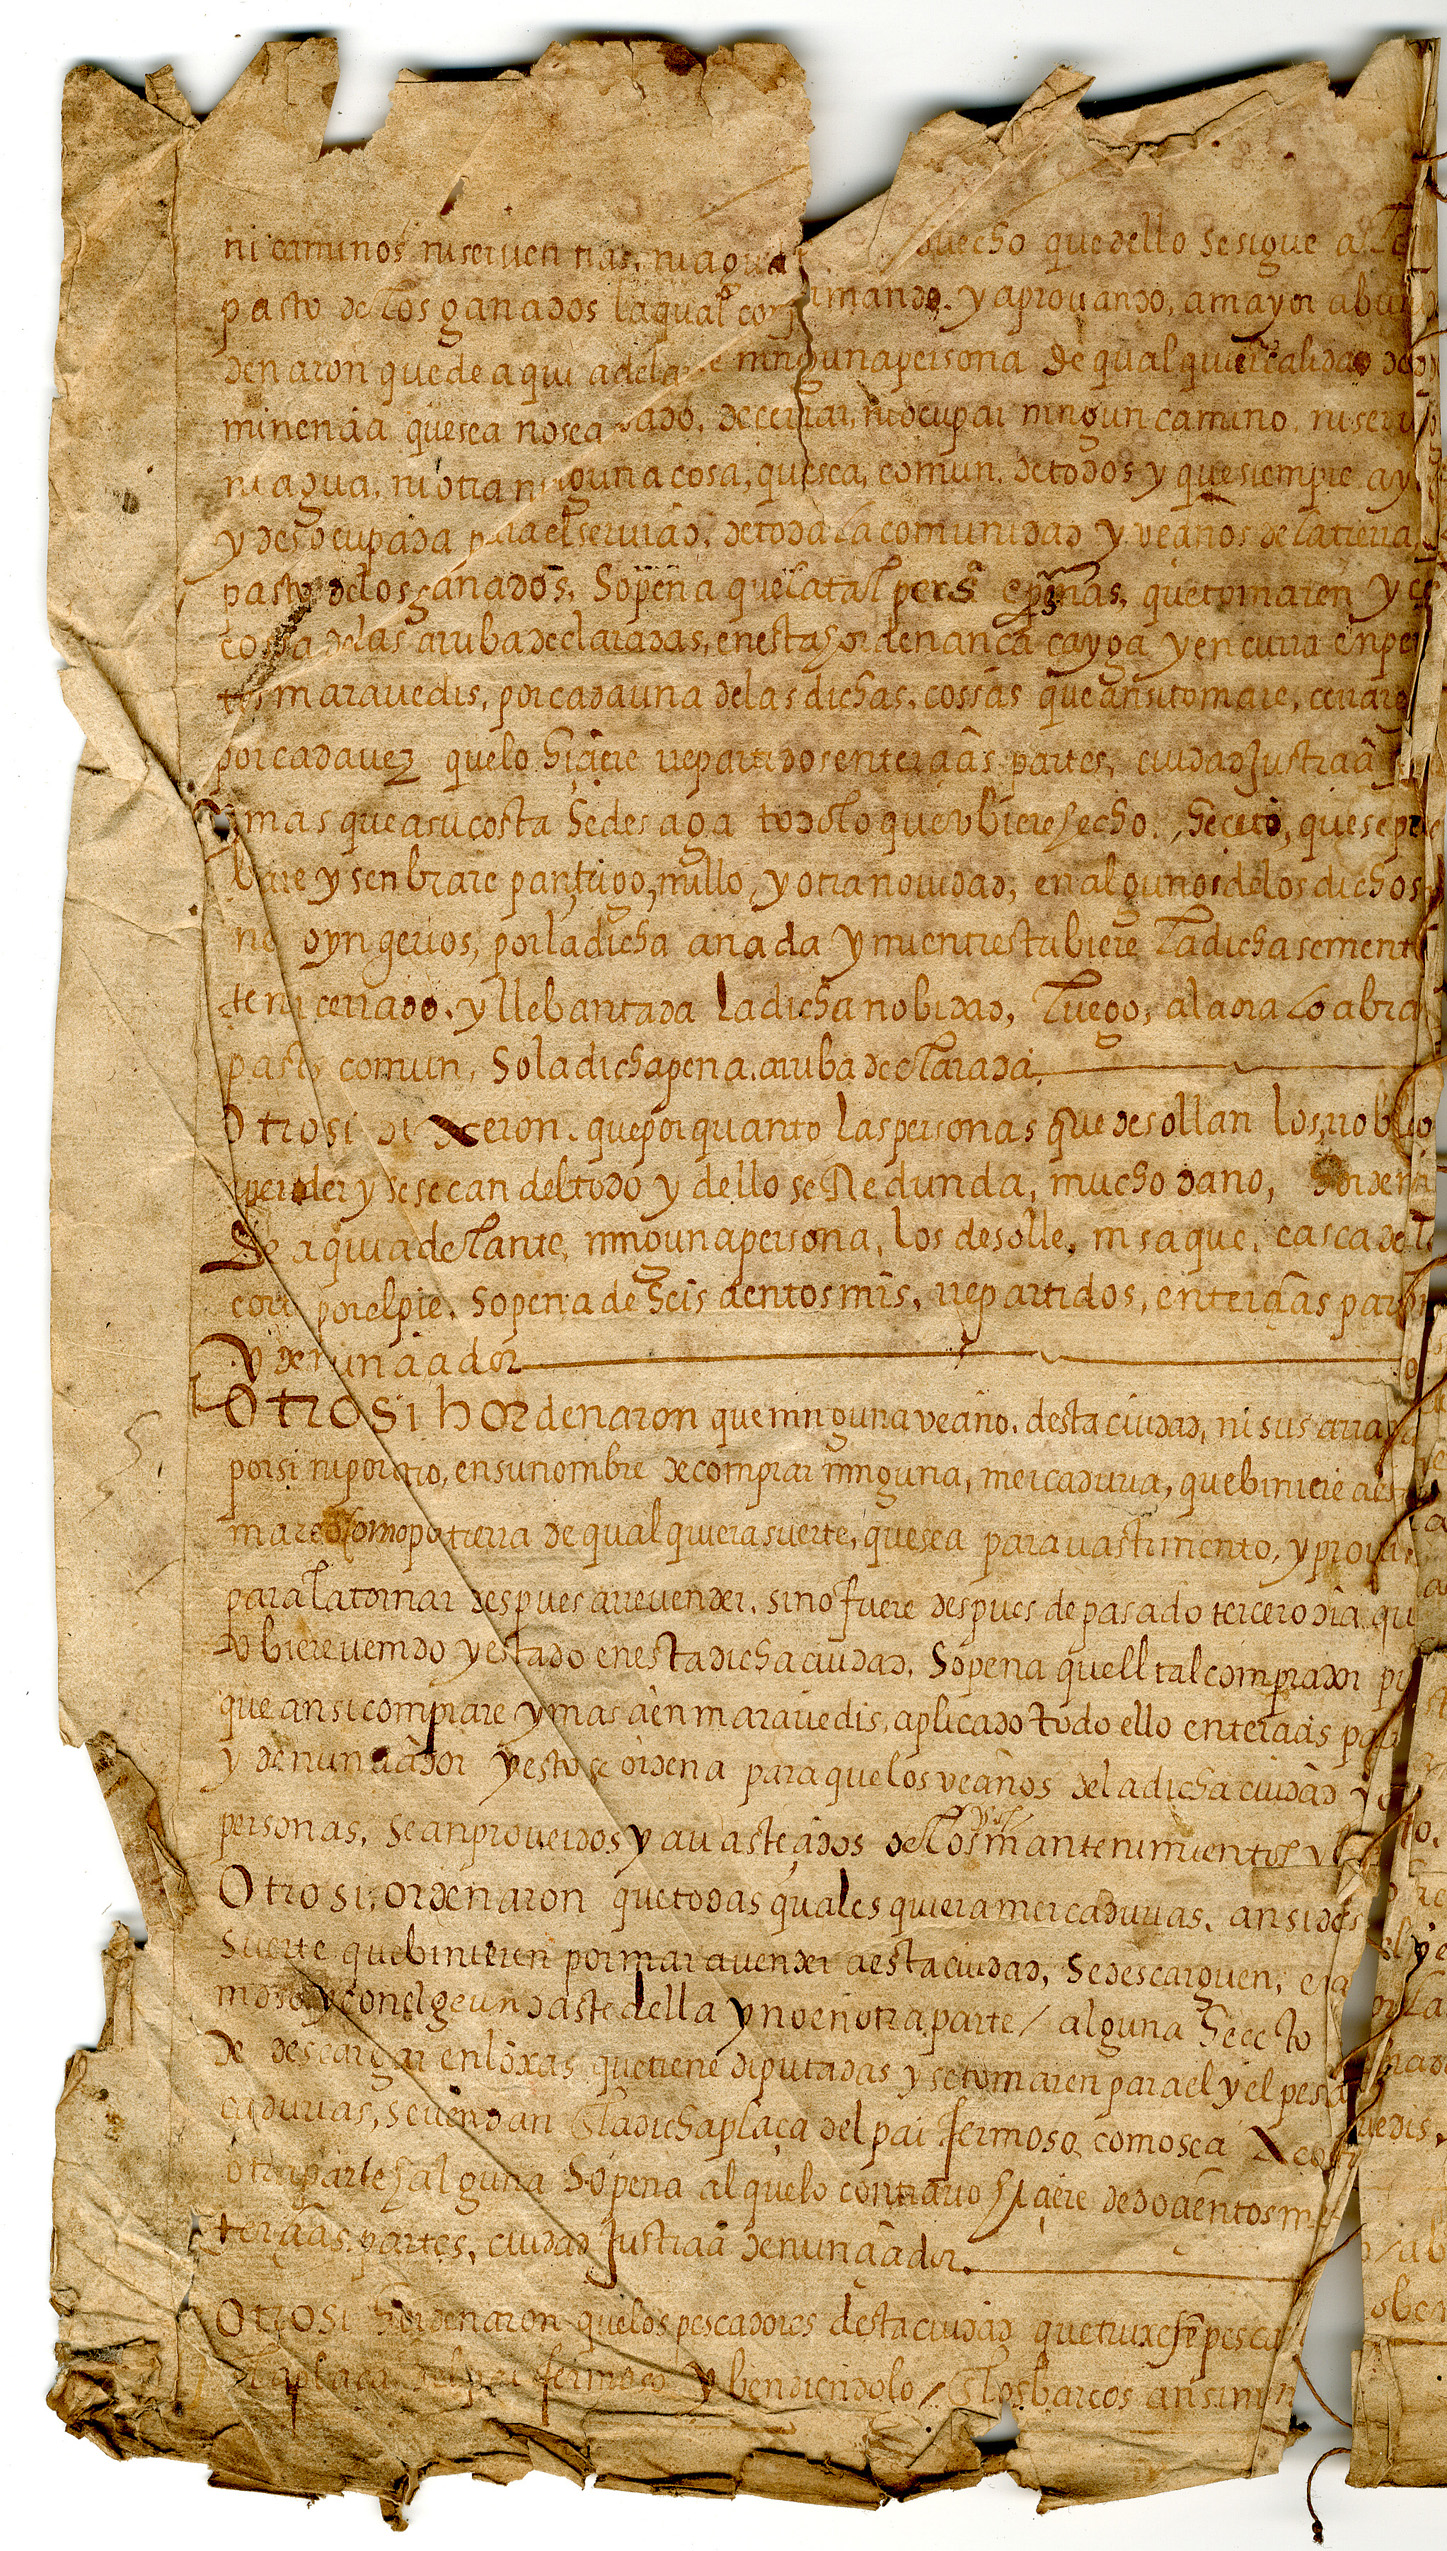 ni caminos ni seruentias, ni agua uecho que dello se sigue al
pasto de los ganados la qual con irmando. y aprouando, a mayor abun
denaron que de aqui adelante ninguna persona de qualquier calidad
minencia que sea no sea sado. de cerrar, ni ocupar ningun camino. ni serui
ni agua, ni otra ninguna cosa, que sea, comun. de todos y que siempre ay
y desocupada para el seruicio. de toda la comunidad y vecinos de la tierra,
pasto de los ganados. So pena que la tal pers que tomaren y ce
cossa de las arriba declaradas, en esta hordenanca cayga y encurra en pe
tos marauedis, por cada una de las dichas, cossas que ansi tomare, cerrare
por cada uez que lo hiciere repartidos en tercias partes, ciudad Justicia
y mas que a su costa se desaga todo lo que vbiere hecho. heceto, que se
brare y senbrare pan, trigo, millo, y otra nouidad, en algunos de los dichos
oyn gerios, por la dicha anada y mientres tubiere la dicha sement
tener cerrado. y llebantada la dicha nobidad, luego, a la ora lo abra
pasto comun, So la dicha pena. arriba declarada.
Otrosi dixeron. que por quanto las personas que desollan los robles
perder y se secan del todo y dello se Redunda, mucho dano, hordena
De aqui adelante, ninguna persona, los desolle, ni saque, casca de
corte por el pie. So pena de seis cientos mrs, repartidos, en tercias par
y denunciador
Otrosi hordenaron que ninguna vecino. desta ciudad, ni sus arra
por si ni por otro, en su nombre de comprar ninguna, mercaduria, que biniere
mar como por tierra de qualquiera suerte, que sea para uastimento, y proui
para la tornar despues a reuender. sino fuere despues de pasado tercero dia qu
vbiere uenido y estado en esta dicha ciudad. So pena quell tal comprador
que ansi comprare y mas cien marauedis, aplicado todo ello en tercias par
y denunciador y esto se ordena para que los vecinos de la dicha ciudad
personas, sean proueidos y auastecidos de los dichos mantenimientos
Otrosi, ordenaron que todas quales quiera mercadurias. ansi de
suerte que binieren por mar a uender a esta ciudad, se descarguen, en
della y no en otra parte / alguna heceto
de descargar en loxas que tiene diputadas y se tomaren para el y el
cadurias, se uendan en la dicha placa del pai fermoso como sea
otra parte alguna So pena al que lo contrario hiciere de docientos
tercias partes, ciudad Justicia denunciador.
Otrosi hordenaron que los pescadores desta ciudad que truxesen pesca
la placa del pai fermoso y bendiendolo / los barcos ansi